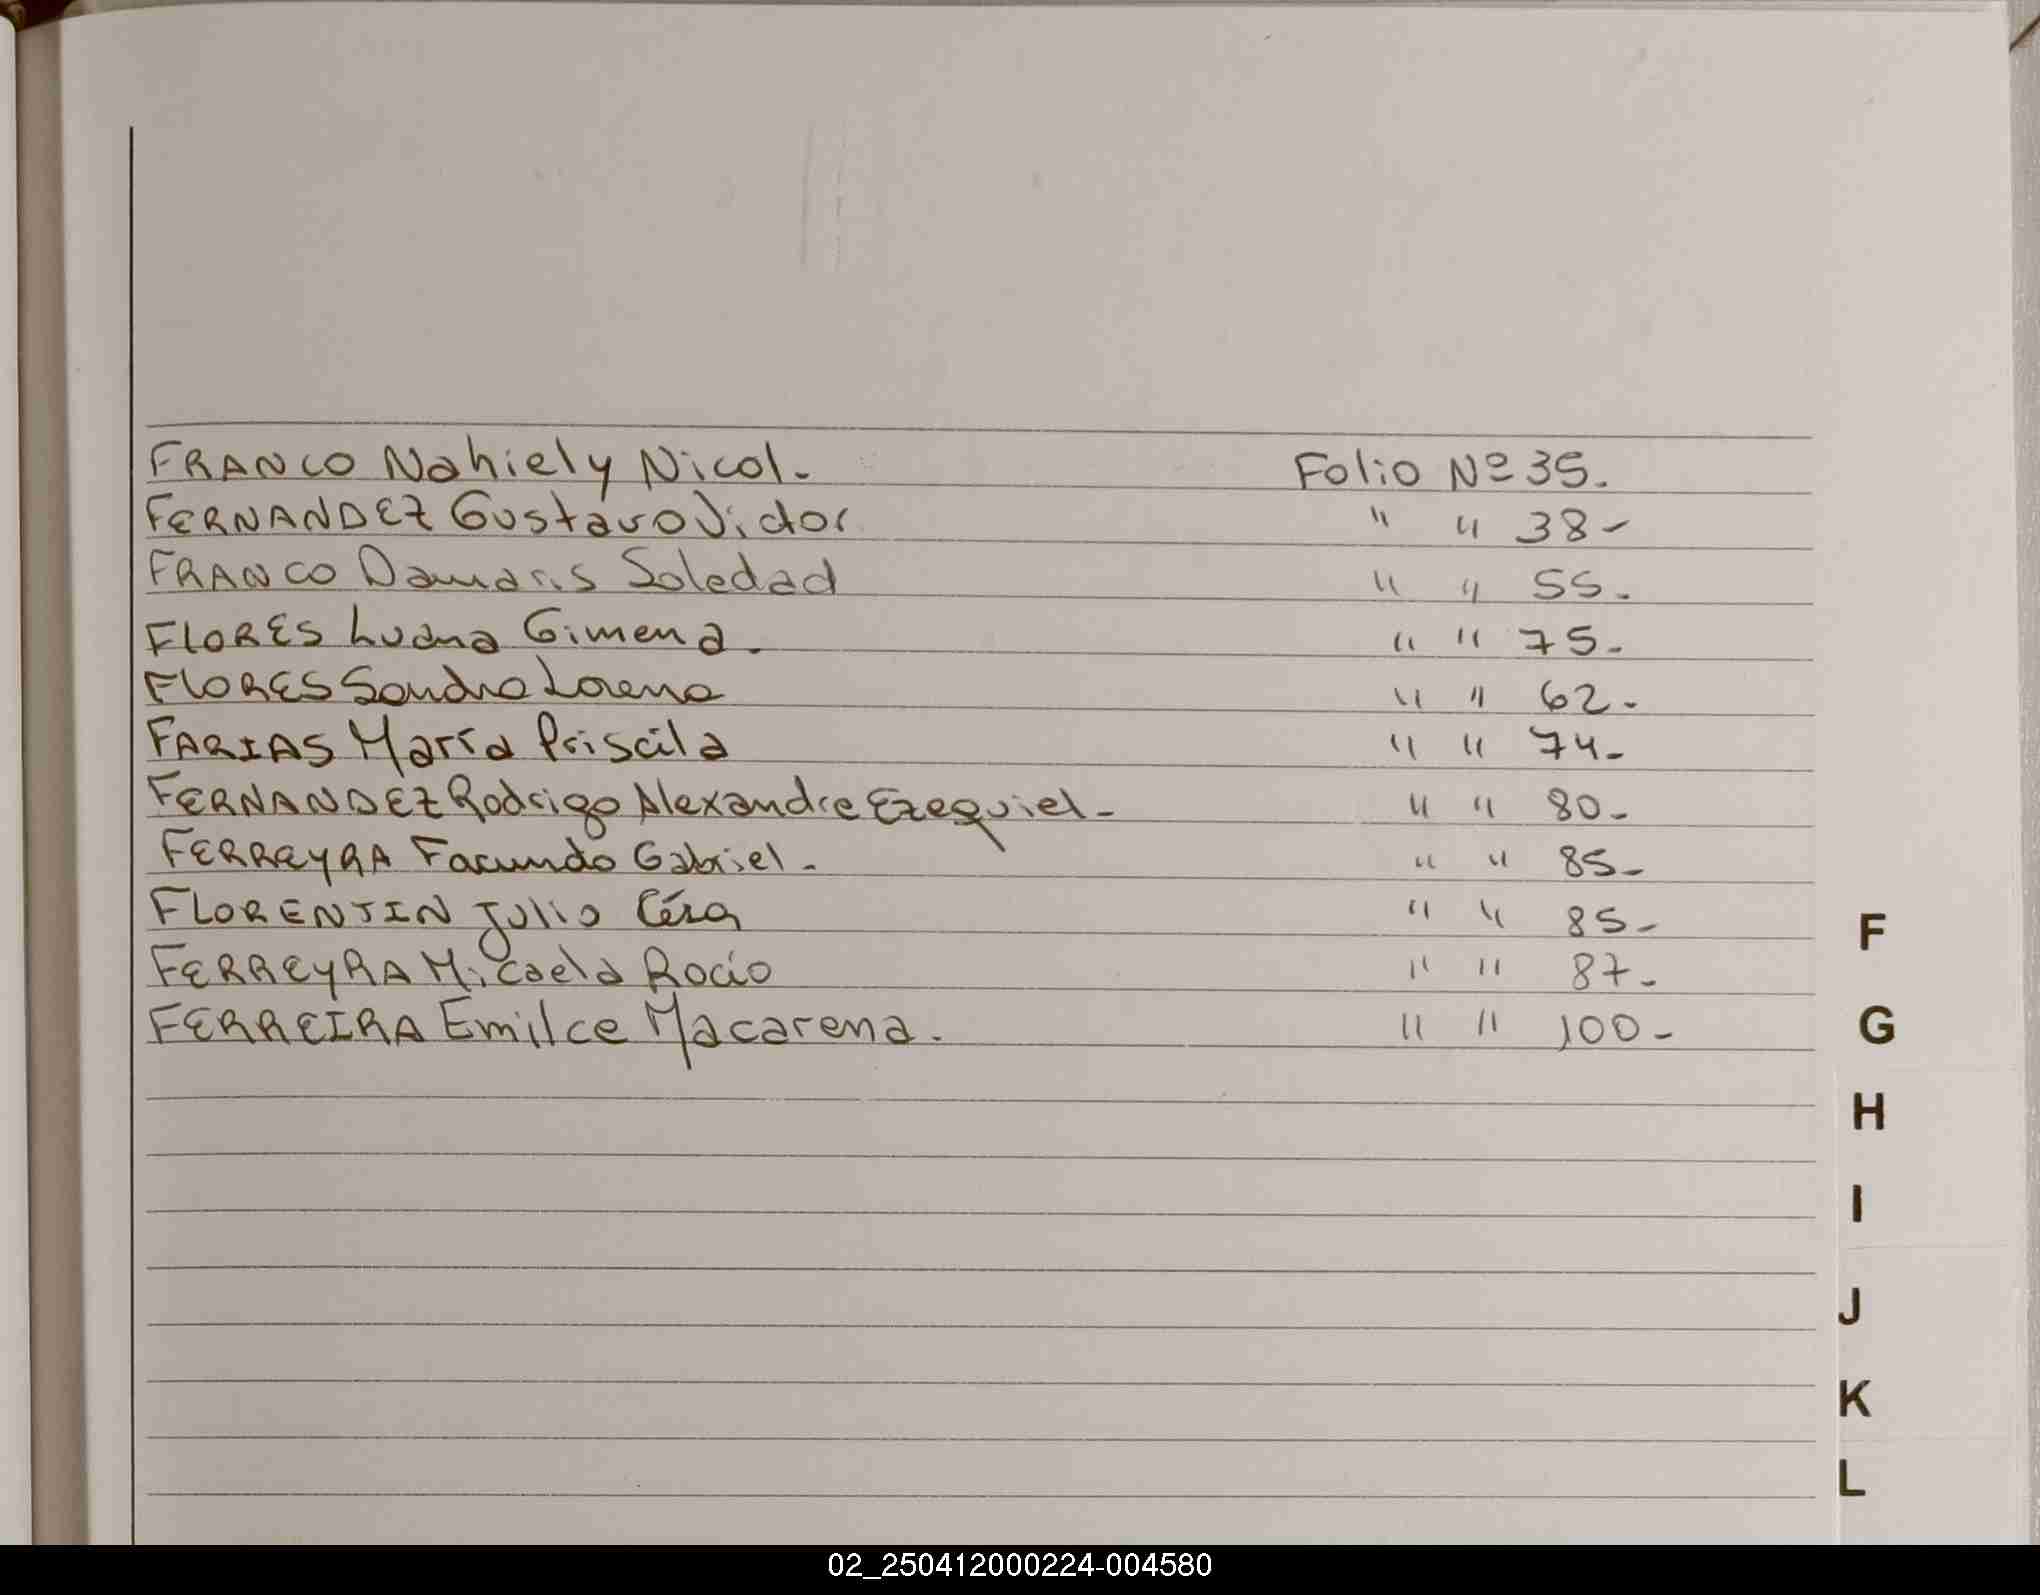 FRANCO Nahiely Nicol. Folio Nº 35.
FERNANDEZ Gustavo Victor " " 38-
FRANCO Damaris Soledad " " 55.
FLORES Luana Gimena. " " 75.
FLORES Sandra Lorena " " 62.
FARIAS María Priscila " " 74-
FERNANDEZ Rodrigo Alexandre Ezequiel- " " 80-
FERREYRA Facundo Gabriel. " " 85-
FLORENTIN Julio " " 85-
FERREYRA Micaela Rocío " " 87-
FERREIRA Emilce Macarena. " " 100-
F
G
H
I
J
K
L
02_250412000224-004580